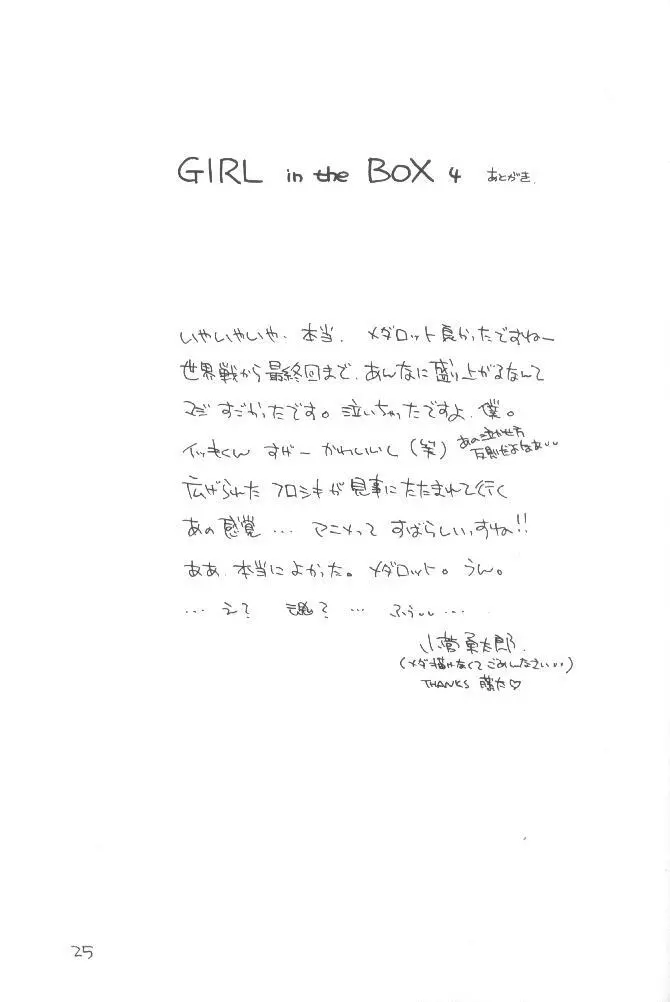 GIRL in the BOX 4 あとがき.
いやいやいや、本当、メダロット良かったですねー
世界戦から最終回まで、あんなに盛り上がるなんて
マジすごかったです。泣いちゃったですよ、僕。
イッキくん すげー かわいいし（笑）
あの泣かせ方
反則だよなあ…
広げられた フロシキが見事にたたまれて行く
あの感覚… アニメって すばらしいっすね!!
ああ、本当によかった。メダロット。うん。
…え？ 魂？ … ふぅ……
小菅勇太郎.
(メダ描けなくてごめんなさい…)
THANKS 藤た♡
25